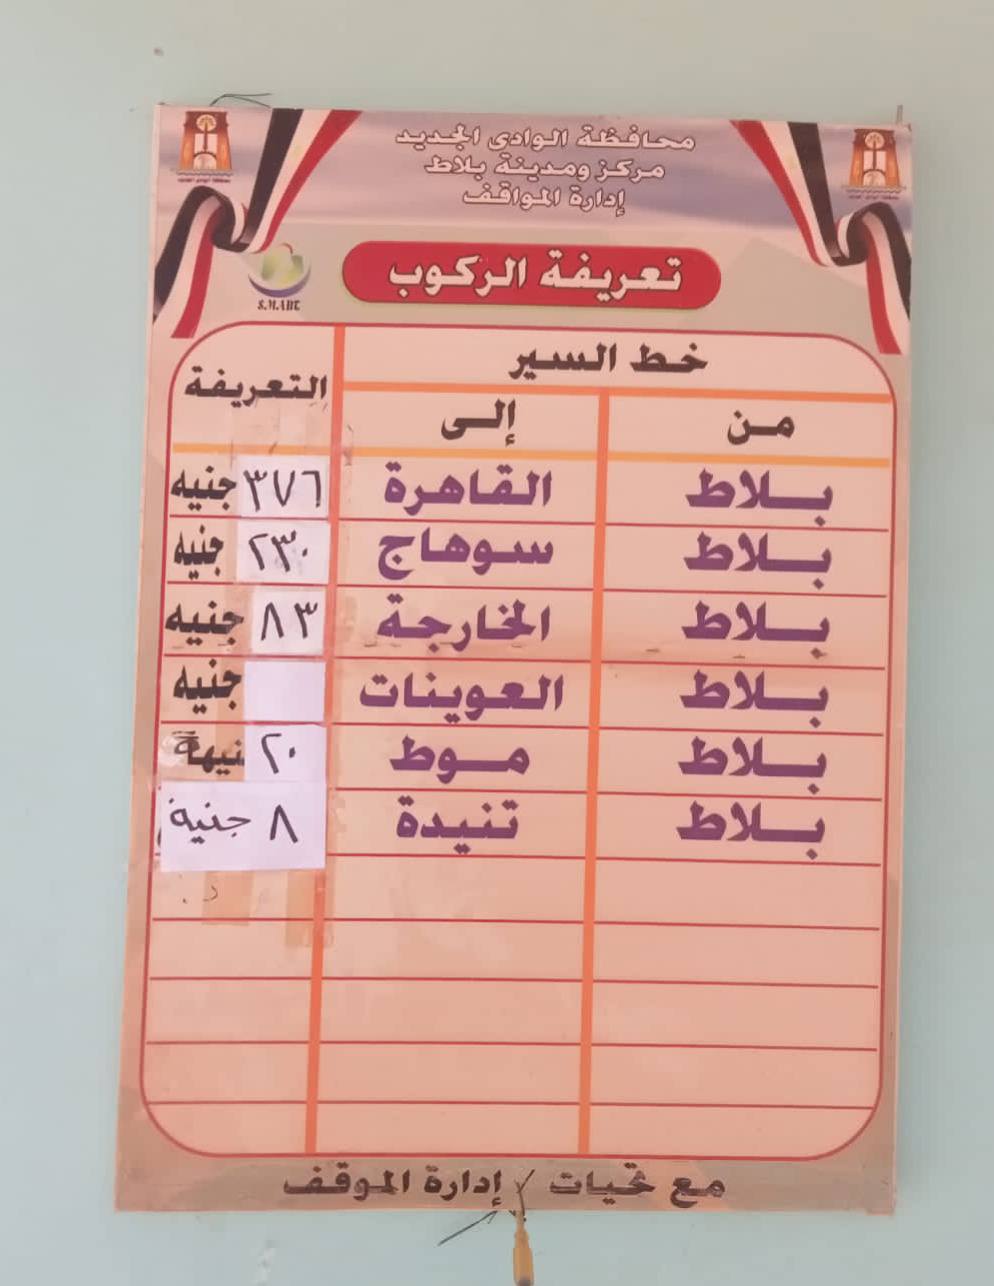 محافظة الوادى الجديد
مركز ومدينة بلاط
إدارة المواقف
تعريفة الركوب
S.MART
خط السير
التعريفة
من إلى
بلاط القاهرة ٣٧٦ جنيه
بلاط سوهاج ٢٣٠ جنيه
بلاط الخارجة ٨٣ جنيه
بلاط العوينات جنيه
بلاط موط ٢٠ نيهة
بلاط تنيدة ٨ جنية
مع تحيات / إدارة الموقف